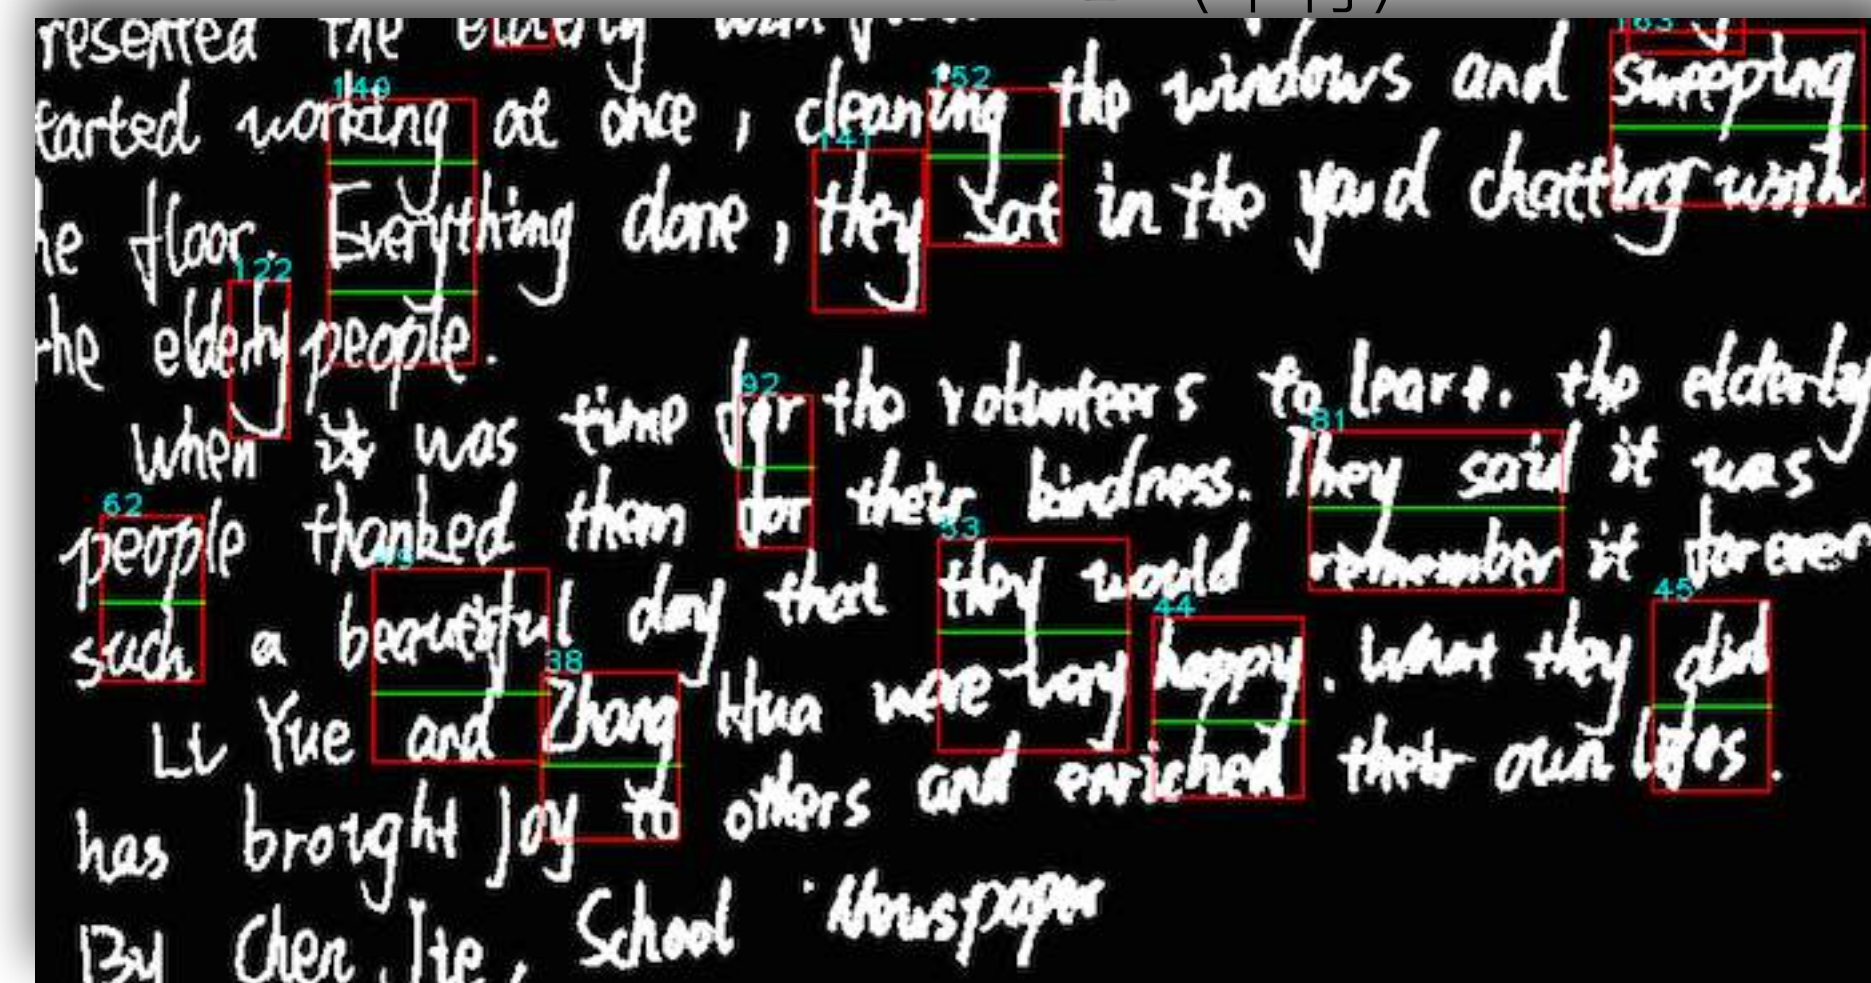 resented the elderly
started working at once, cleaning the windows and sweeping
he floor. Everything done, they sat in the yard chatting with
the eldery people.
When it was time for the volunteers to leave. the elderly
people thanked them for their kindness. They said it was
such a beautiful day that they would remember it forever
Li Yue and Zhang Hua were very happy. What they did
has brought joy to others and enriched their own lifes.
By Chen Jie, School Newspaper
163
149
152
141
122
92
81
62
53
49
44
45
38